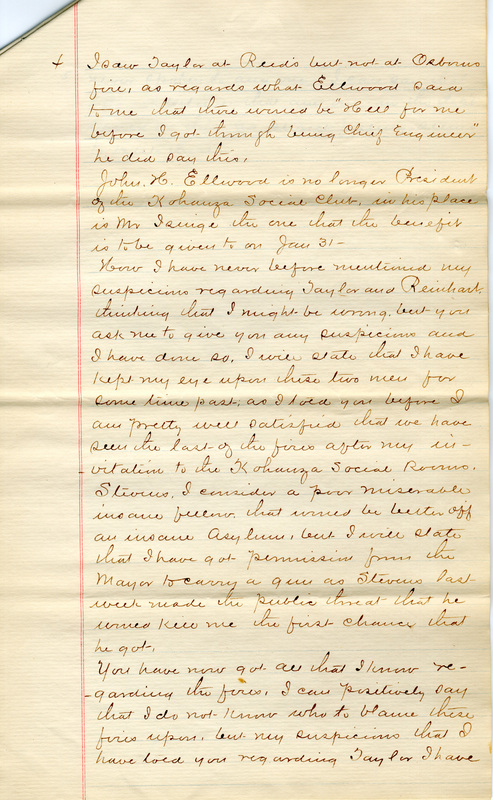 4 I saw Taylor at Reed's but not at Osborns
fire, as regards what Ellwood said
to me that there would be "Hell for me
before I got through being Chief Engineer"
he did say this.
John. H. Ellwood is no longer President
of the Kohanza Social Club, in his place
is Mr Isinge the one that the benefit
is to be given to on Jan 31-
Now I have never before mentioned my
suspicions regarding Taylor and Reinhart.
thinking that I might be wrong. but you
ask me to give you any suspicions and
I have done so, I will state that I have
kept my eye upon these two men for
some time past; as I told you before I
am pretty well satisfied that we have
seen the last of the fires after my in-
-vitation to the Kohanza Social Rooms.
Stevens, I consider a poor miserable
insane fellow. that would be better off
an insane Asylum, but I will state
that I have got permission from the
Mayor to carry a gun as Stevens last
week made the public threat that he
would kill me the first chance that
he got.
You have now got all that I know re-
-garding the fires, I can positively say
that I do not know who to blame these
fires upon, but my suspicions that I
have told you regarding Taylor I have